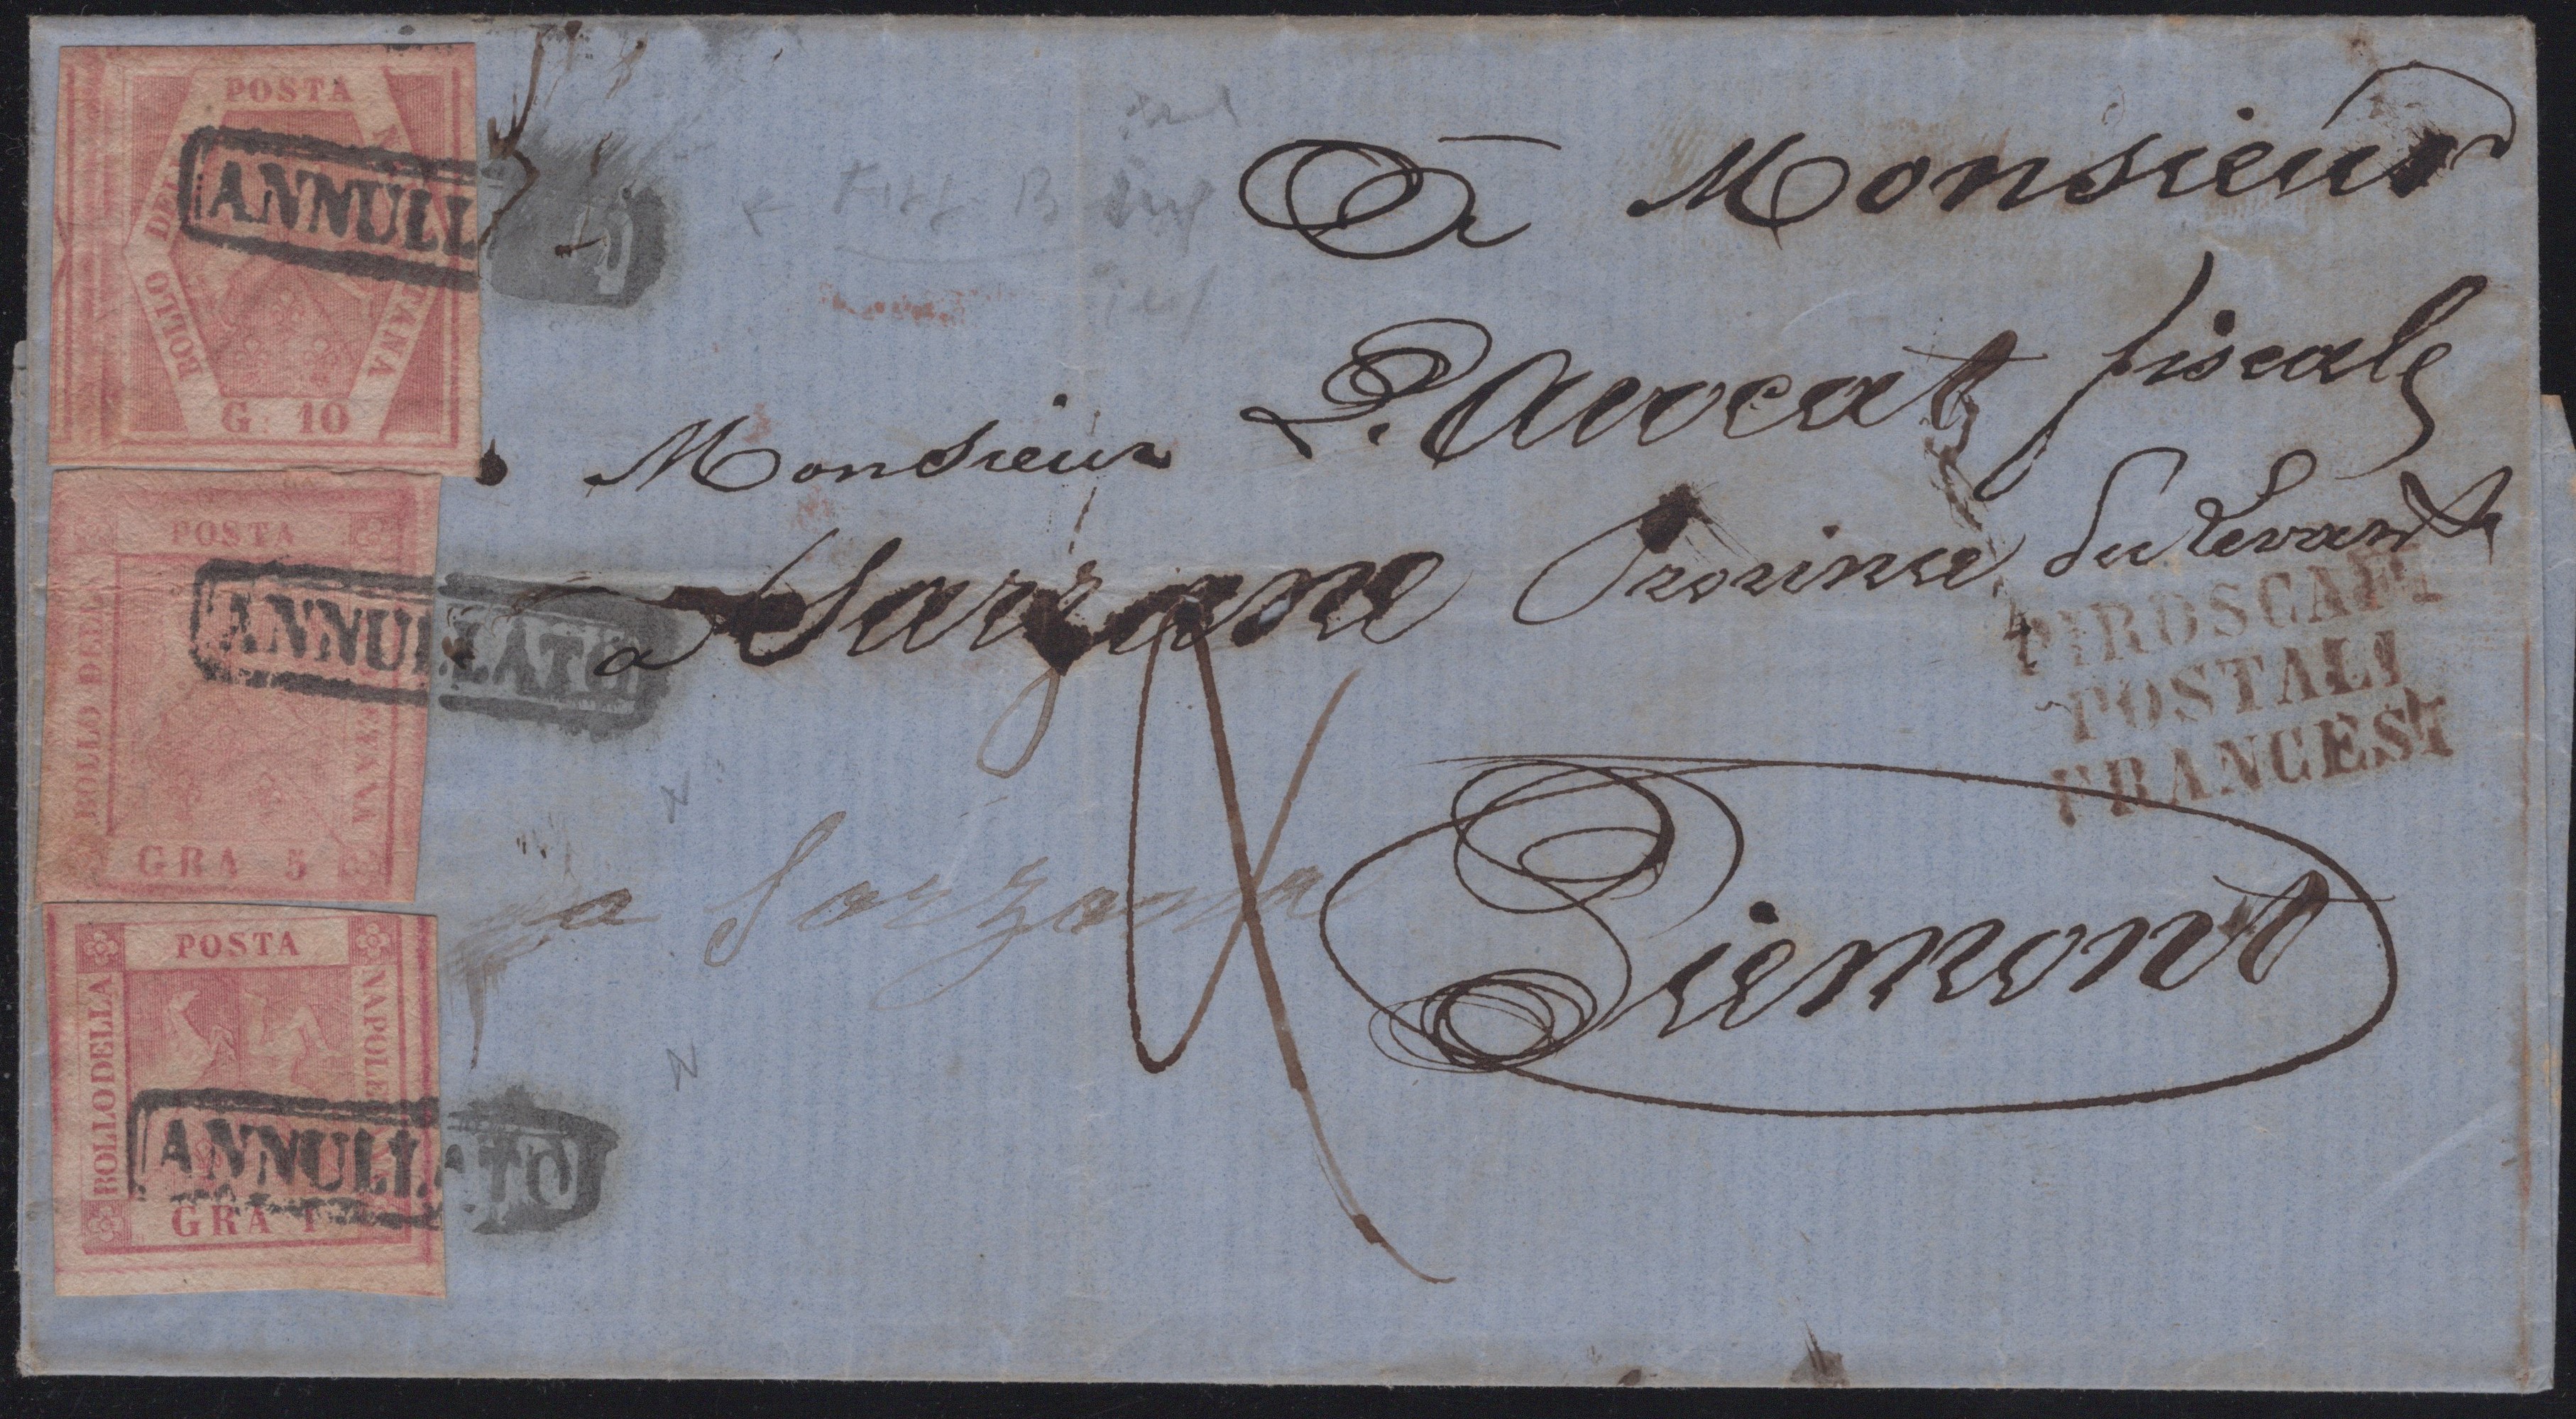 POSTA
BOLLO DELLA NAPOLETANA
G. 10
ANNULLATO
POSTA
BOLLO DELLA NAPOLETANA
GRA 5
ANNULLATO
POSTA
BOLLO DELLA NAPOLETANA
GRA 1
ANNULLATO
A Monsieur
Monsieur L'avocat fiscale
a Sarzane Province du Levant
PIROSCAFI
POSTALI
FRANCESI
a Sarzana
Piemont